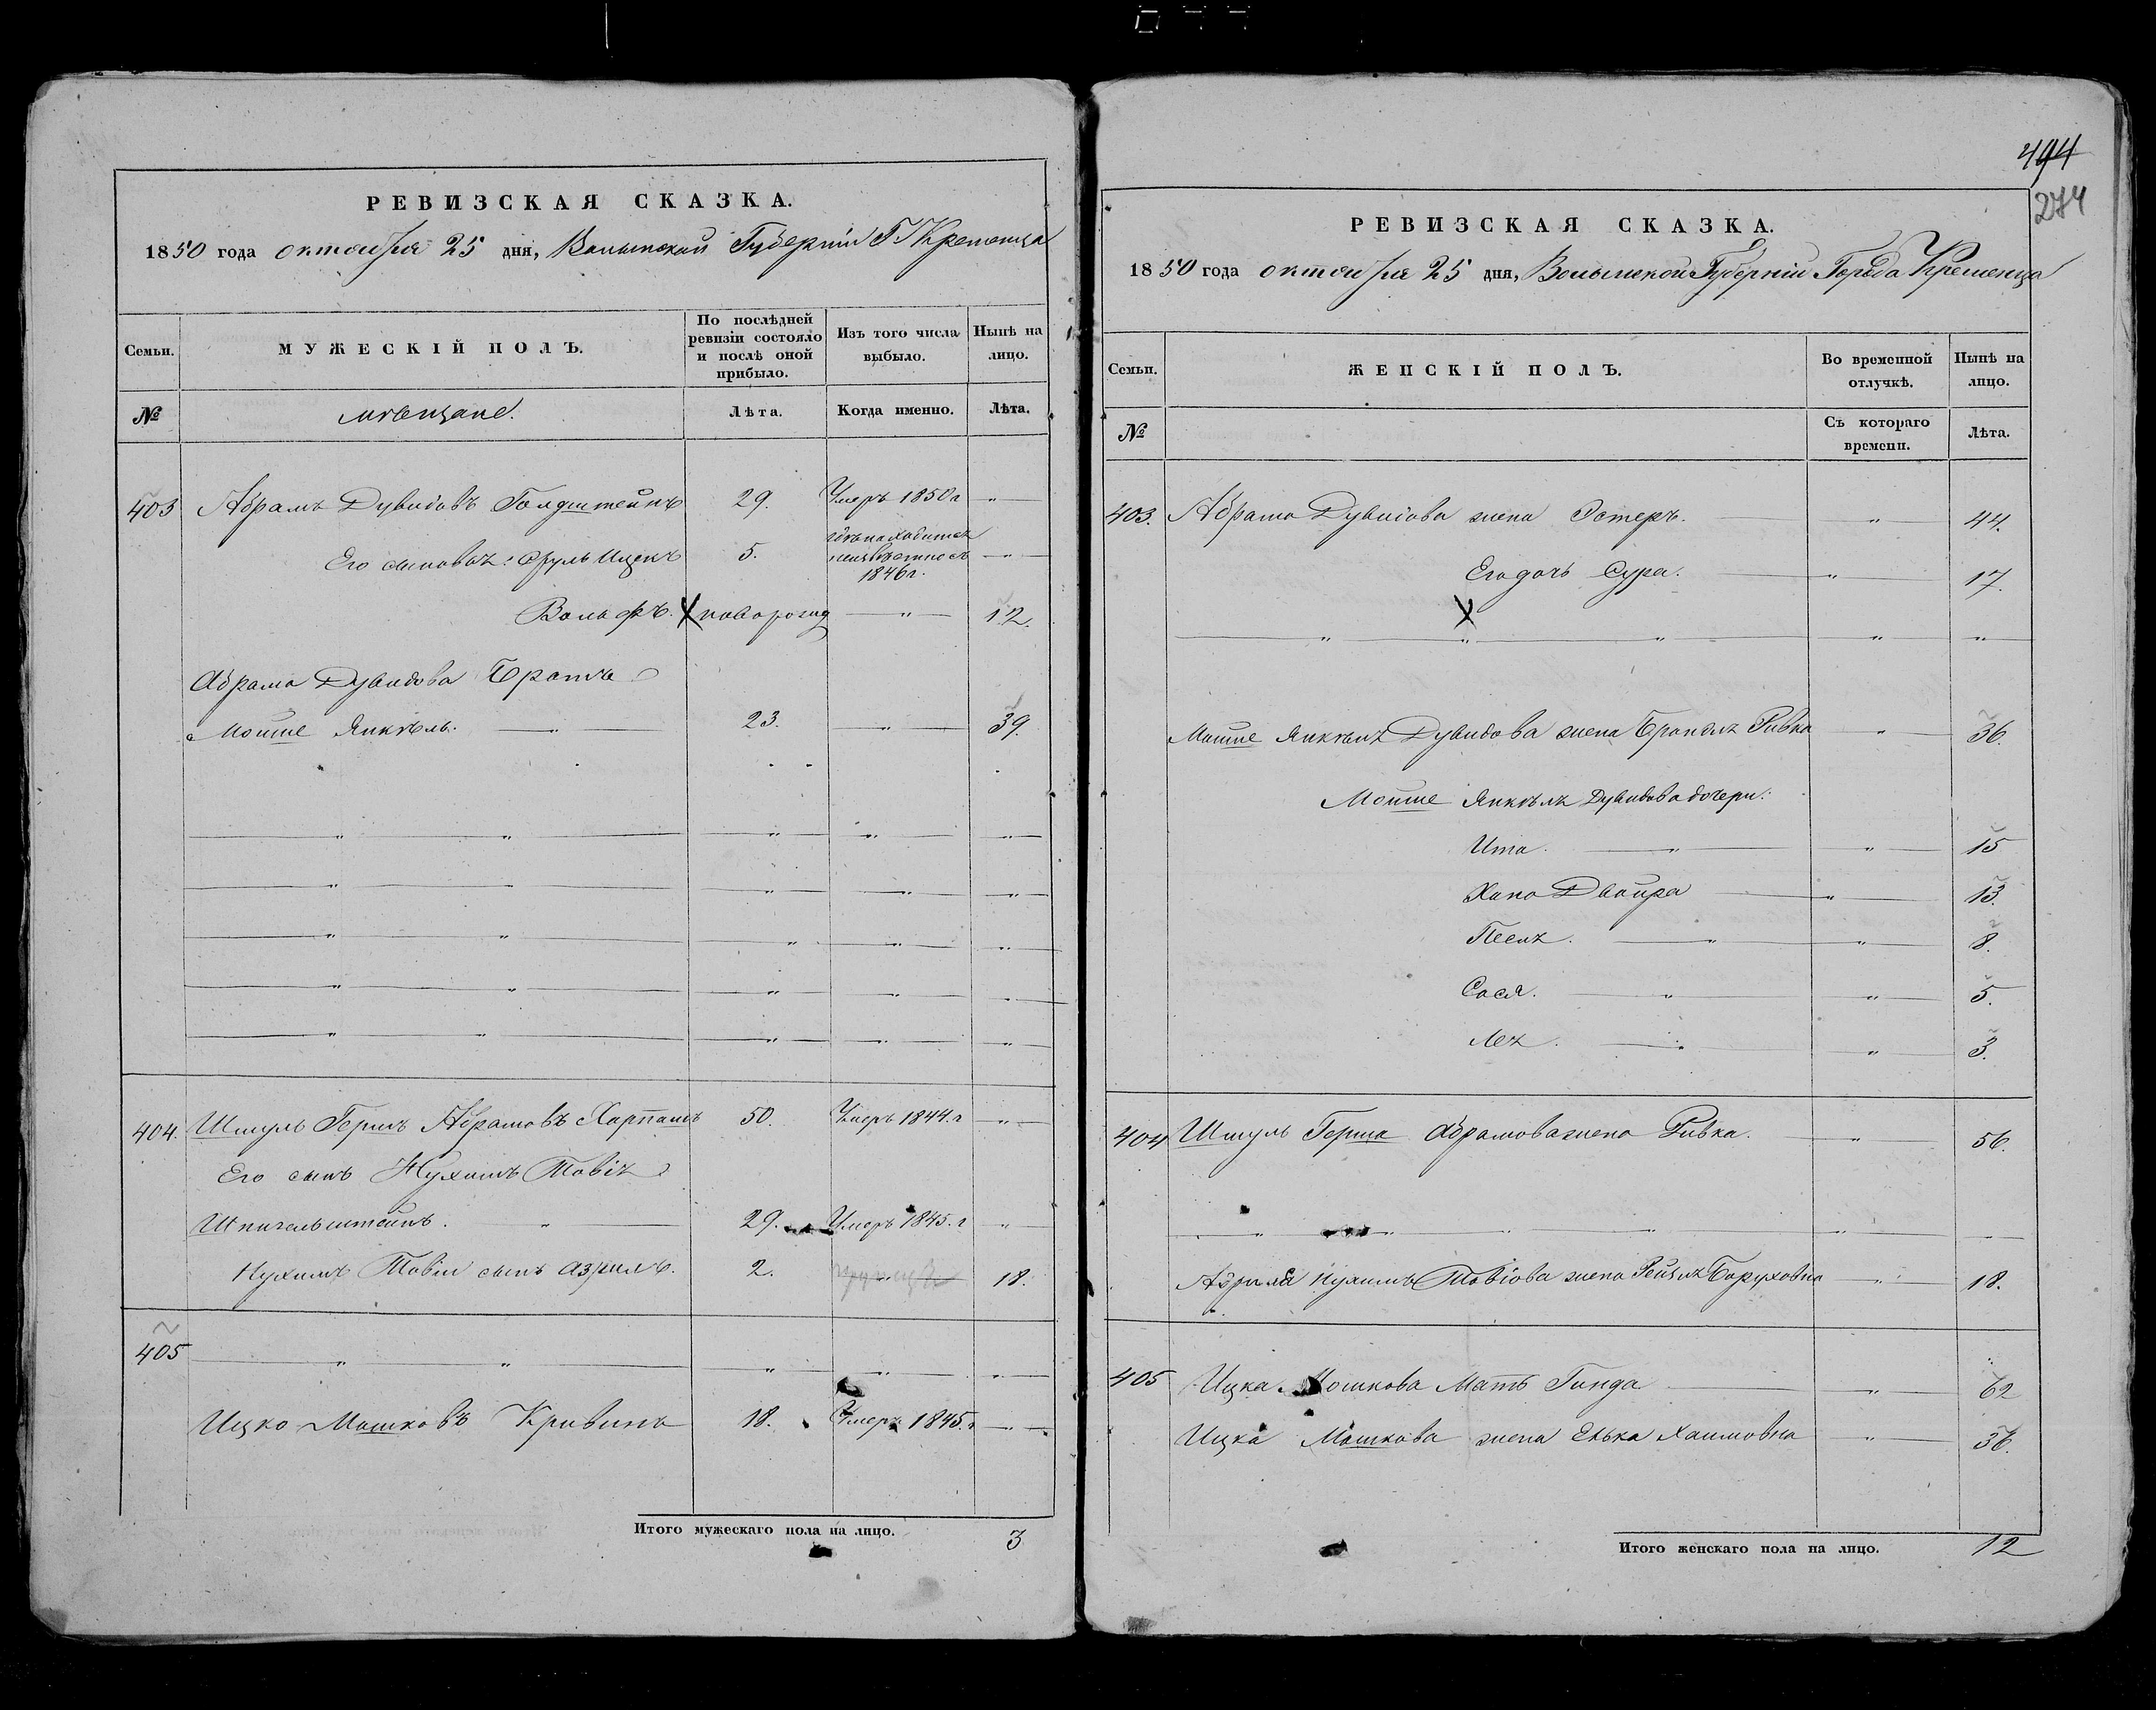 РЕВИЗСКАЯ СКАЗКА.
1850 года октября 25 дня, Волынской Губерніи Г. Кременца
Семьи.
МУЖЕСКІЙ ПОЛЪ.
По послѣдней ревизіи состояло и послѣ оной прибыло.
Изъ того числа выбыло.
Нынѣ на лицо.
№
мѣщане.
Лѣта.
Когда именно.
Лѣта.
403 Абрамъ Дувидовъ Голдштейнъ 29. Умеръ 1850 г. „
Его сыновья: Сруль Ицекъ 5. 1846 г. „
Вольфъ. X новорожд „ 12.
Абрама Дувидова Братъ
Мошше Янкѣль. „ 23. „ 39.
404. Шмуль Гершъ Абрамовъ 50. Умеръ 1844. г „
Его сынъ Нухимъ Товія
Шпигельштейнъ. „ 29. Умеръ 1845. г „
Нухимъ Товіи сынъ Азриль. 2. 18.
405 „ „ „ „ „
Ицко Мошковъ Кривинъ 18. Умеръ 1845. г „
Итого мужескаго пола на лицо. 3
494
274
РЕВИЗСКАЯ СКАЗКА.
1850 года октября 25 дня, Волынской Губерніи Города Кременца
Семьи.
ЖЕНСКІЙ ПОЛЪ.
Во временной отлучкѣ.
Нынѣ на лицо.
№
Съ котораго времени.
Лѣта.
403. Абрама Дувидова жена Эстеръ. „ 44.
Его дочь Сура. „ 17.
X
„ „ „ „ „
Мошше Янкеля Дувидова жена Брандля Ривка „ 36.
Мошше Янкѣля Дувидова дочери:
Ита. „ „ 15
Хана Двойра „ 13.
Песя. „ „ 8.
Сося. „ „ 5.
Лея. „ „ 3.
404 Шмуль Герша Абрамова жена Ривка. „ 56.
Азриля Нухимъ Товіова жена Рейзля Боруховна „ 18.
405 Ицка Мошкова Мать Гинда „ 62
Ицка Мошкова жена Енька Хаимовна „ 36.
Итого женскаго пола на лицо. 12